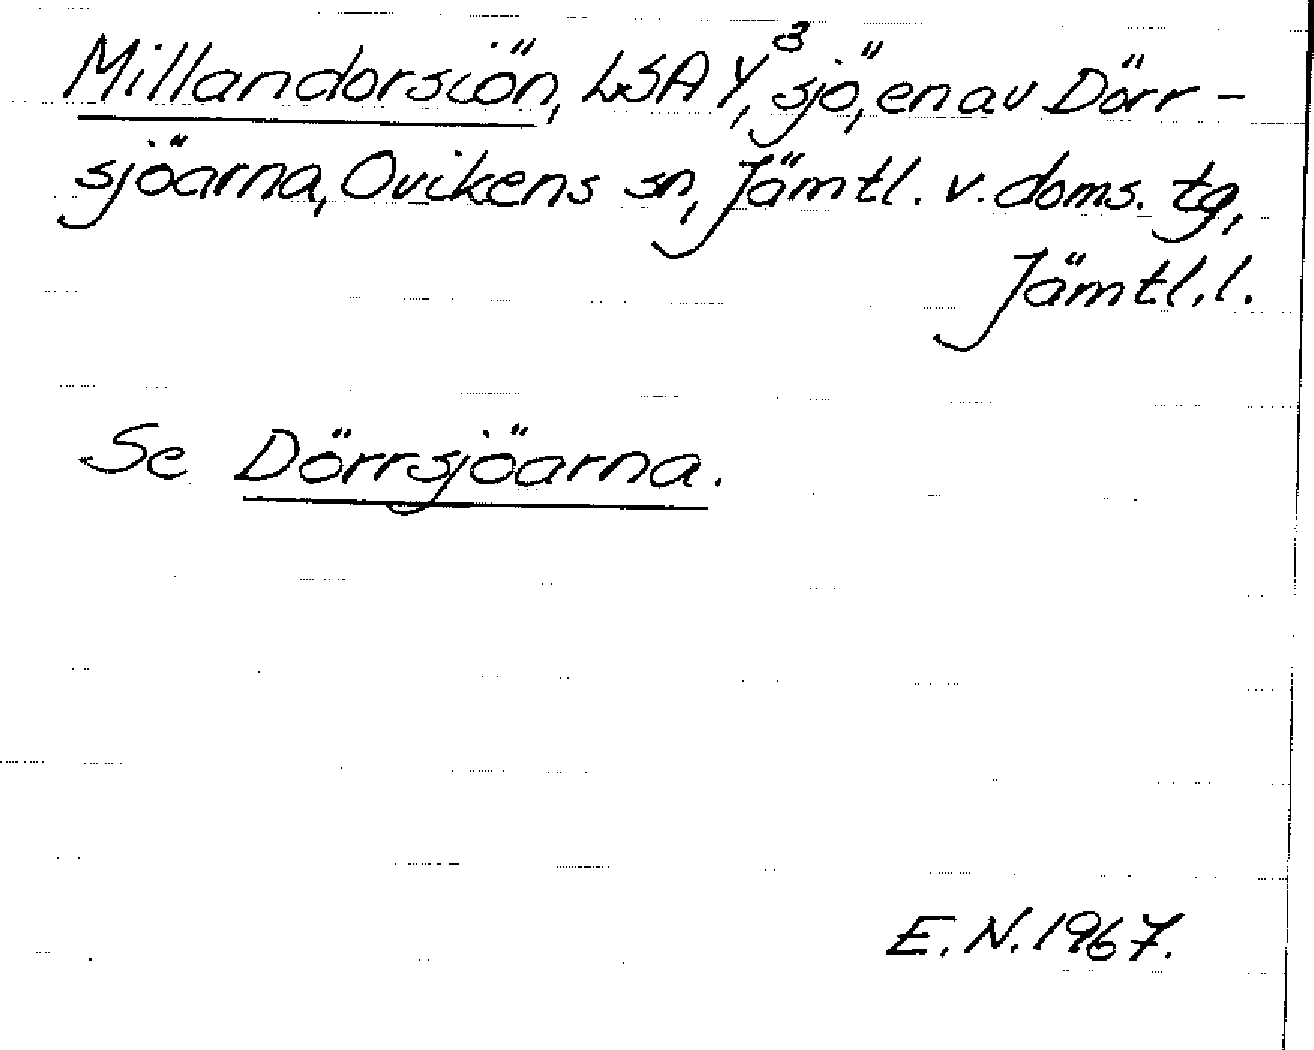 Millandorsiön, LSA Y³, sjö, en av Dörr-
sjöarna, Ovikens sn, Jämtl. v. doms. tg,
Jämtl. l.
Se Dörrsjöarna.
E. N. 1967.